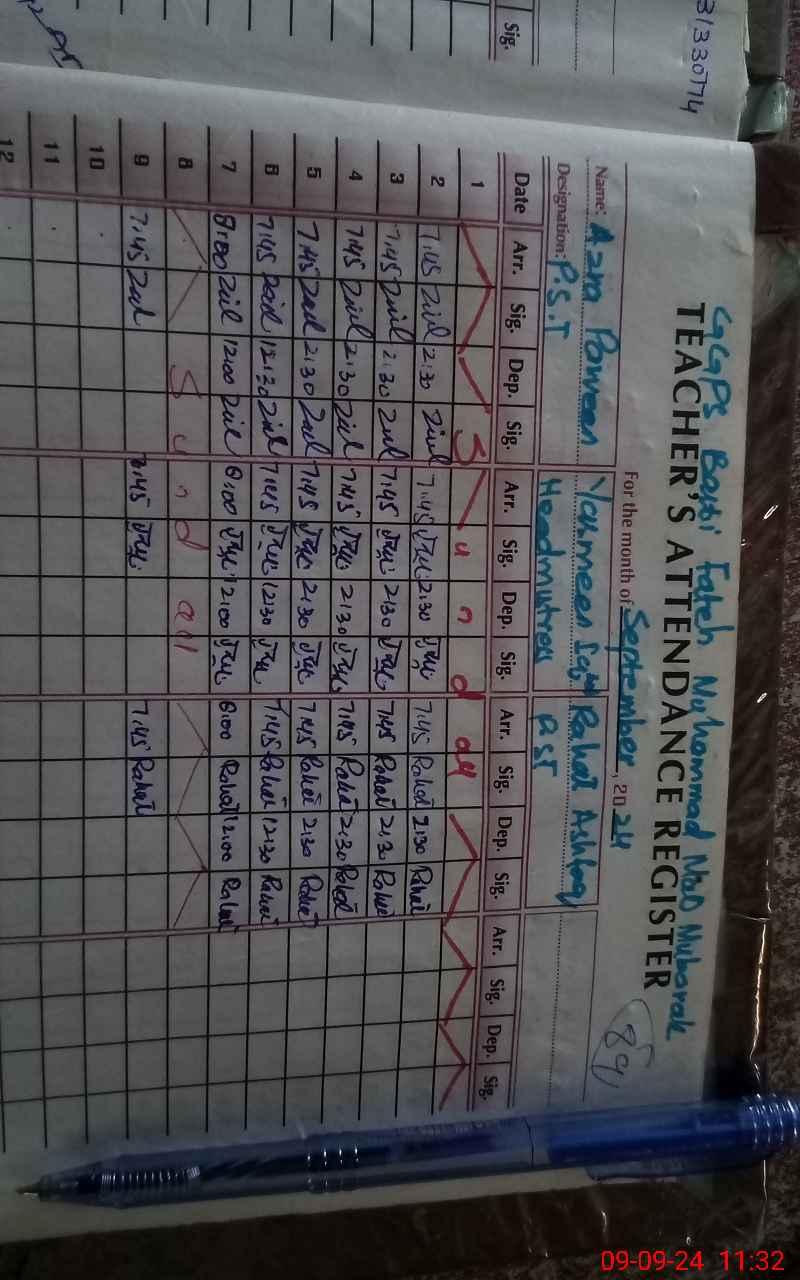 31330774
Sig.
GGPS Basti Fateh Muhammad Nao Mubarak
TEACHER'S ATTENDANCE REGISTER
89
For the month of September, 2024
Name: Azra Parveen Yasmeen Rahat Ashfaq
Designation: P.S.T Headmistress PST
Date Arr. Sig. Dep. Sig. Arr. Sig. Dep. Sig. Arr. Sig. Dep. Sig. Arr. Sig. Dep. Sig.
1 S u n d ay
2 7:45 2:30 7:45 2:30 7:45 Rahat 2:30 Rahat
3 7:45 2:30 7:45 2:30 7:45 Rahat 2:30 Rahat
4 7:45 2:30 7:45 2:30 7:45 Rahat 2:30 Rahat
5 7:45 2:30 7:45 2:30 7:45 Rahat 2:30 Rahat
6 7:45 12:30 7:45 12:30 7:45 Rahat 12:30 Rahat
7 8:00 12:00 8:00 12:00 8:00 Rahat 12:00 Rahat
8 S u n d ay
9 7:45 7:45 7:45 Rahat
10
11
12
09-09-24 11:32